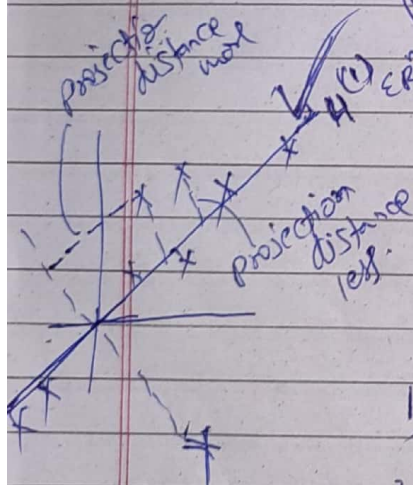 projection
distance
more
H (1)
projection
distance
less.